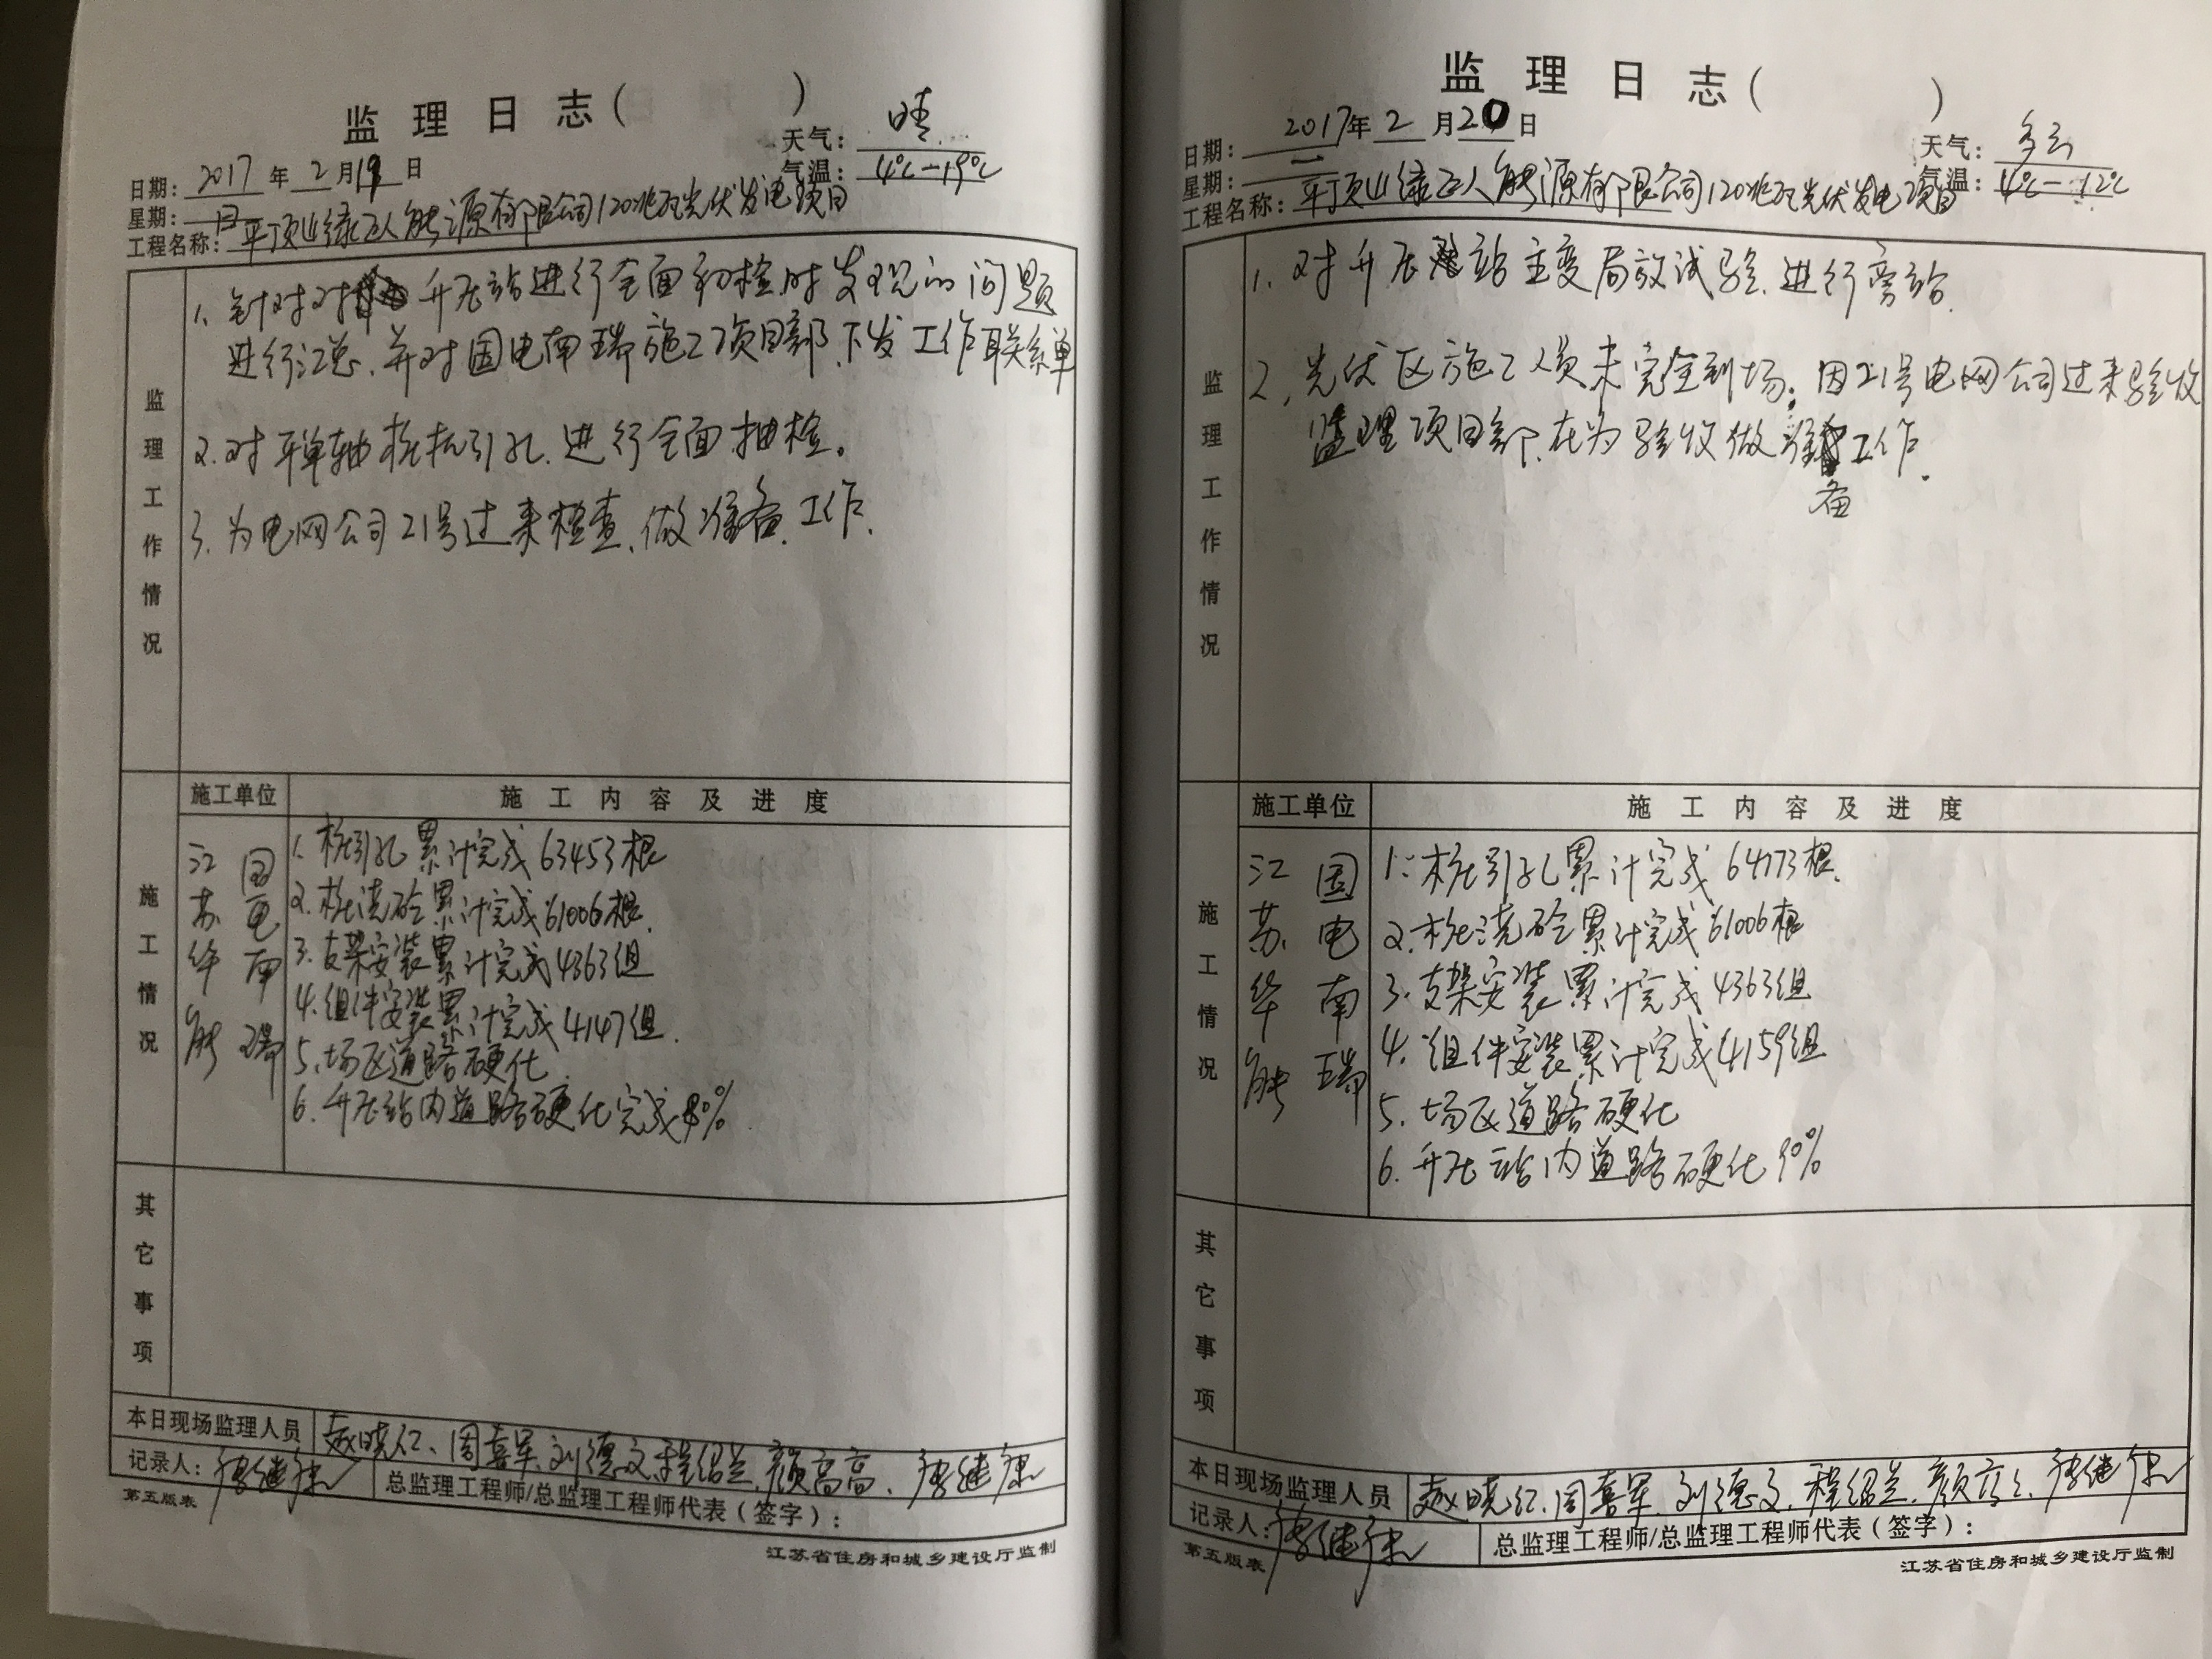 监理日志( )
日期: 2017年2月19日
天气: 晴
星期: 日
气温: 4℃-19℃
工程名称: 平顶山绿巨人能源有限公司120兆瓦光伏发电项目
监理工作情况
1、针对对升压站进行全面初检时发现的问题
进行汇总,并对国电南瑞施工项目部下发工作联系单
2.对平单轴桩机引孔.进行全面抽检。
3.为电网公司21号过来检查、做准备工作.
施工情况
施工单位
施工内容及进度
江苏华能
国电南瑞
1.桩引孔累计完成63453根
2.桩浇砼累计完成61006根.
3.支架安装累计完成4363组
4.组件安装累计完成4147组.
5.场区道路硬化
6.升压站内道路硬化完成80%
其它事项
本日现场监理人员 赵晓仁、周喜军、刘德文、程绍兰、颜高高、唐继康
记录人: 唐继康
总监理工程师/总监理工程师代表(签字):
第五版表
江苏省住房和城乡建设厅监制
监理日志( )
日期: 2017年2月20日
天气: 多云
星期: 一
气温: 4℃-12℃
工程名称: 平顶山绿巨人能源有限公司120兆瓦光伏发电项目
监理工作情况
1.对升压站主变局放试验.进行旁站.
2.光伏区施工人员未完全到场.因21号电网公司过来验收
监理项目部.在为验收做准备工作.
施工情况
施工单位
施工内容及进度
江苏华能
国电南瑞
1:桩引孔累计完成64773根.
2.桩浇砼累计完成61006根
3.支架安装累计完成4363组
4.组件安装累计完成4159组
5.场区道路硬化
6.升压站内道路硬化90%
其它事项
本日现场监理人员 赵晓仁、周喜军、刘德文、程绍兰、颜高高、唐继康
记录人: 唐继康
总监理工程师/总监理工程师代表(签字):
第五版表
江苏省住房和城乡建设厅监制